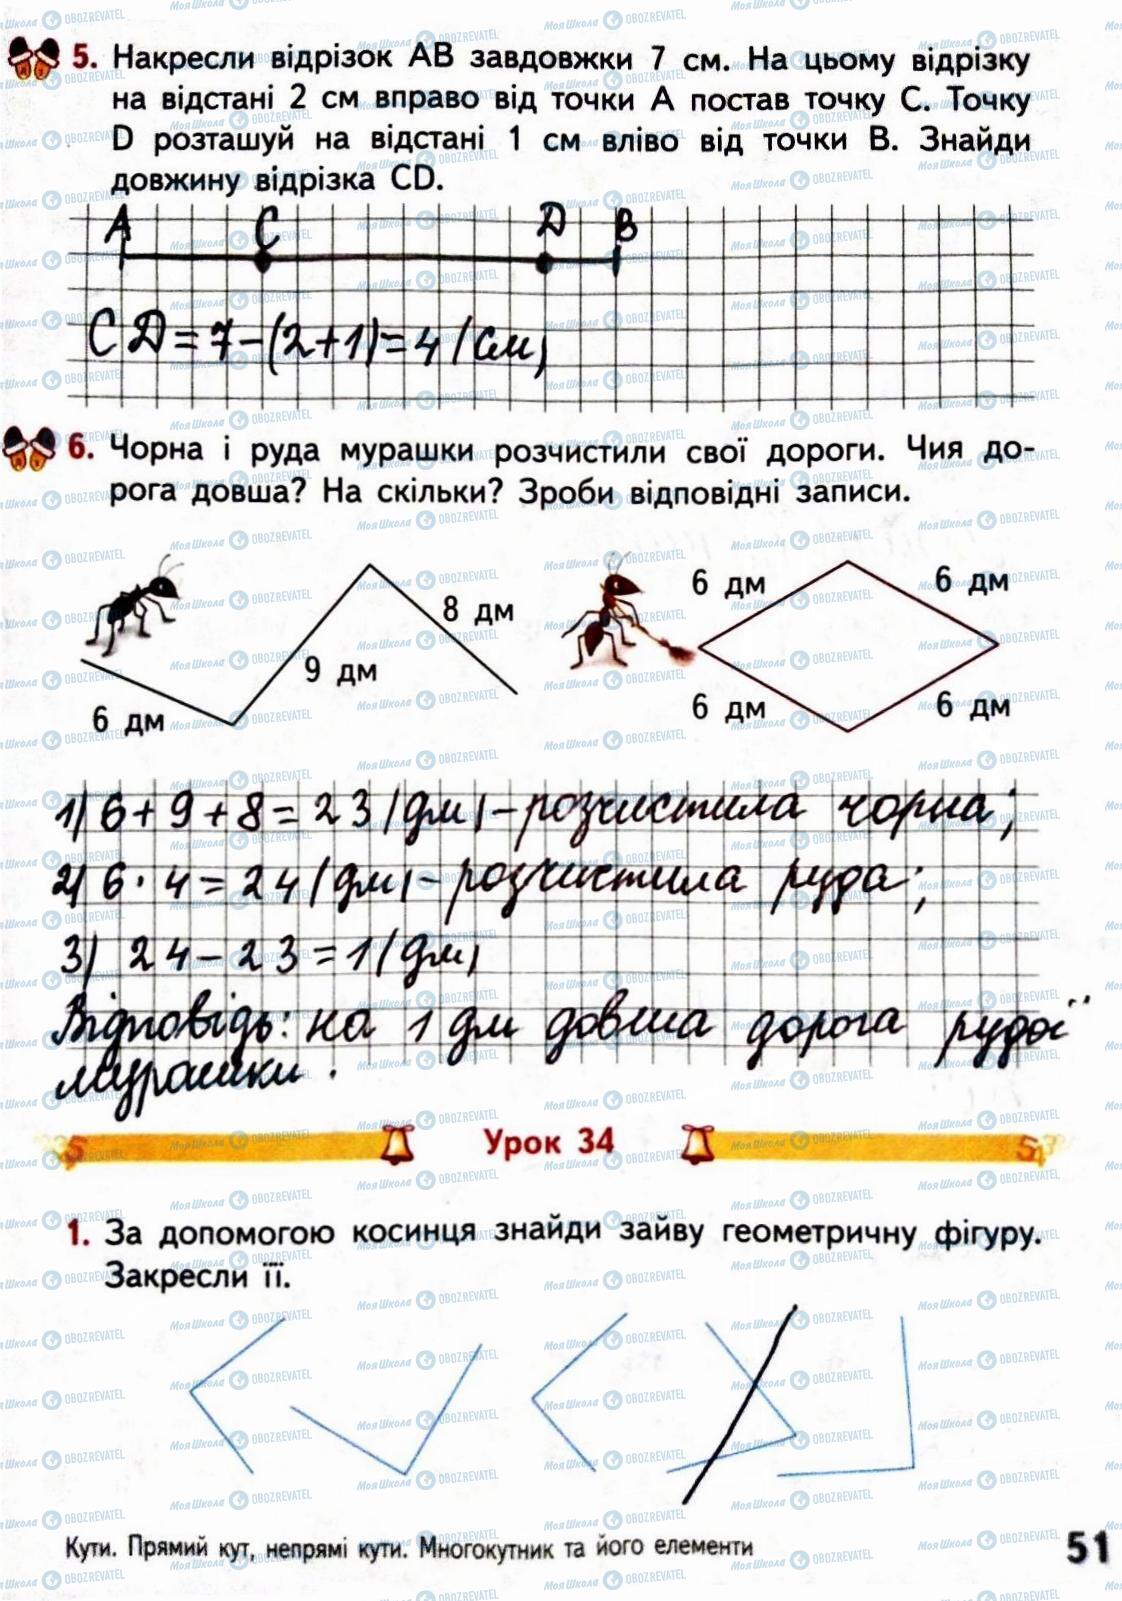 5. Накресли відрізок АВ завдовжки 7 см. На цьому відрізку
на відстані 2 см вправо від точки А постав точку С. Точку
D розташуй на відстані 1 см вліво від точки В. Знайди
довжину відрізка CD.
А С D В
CD = 7 - (2+1) = 4 (см)
6. Чорна і руда мурашки розчистили свої дороги. Чия до-
рога довша? На скільки? Зроби відповідні записи.
6 дм 9 дм 8 дм
6 дм 6 дм
6 дм 6 дм
1) 6 + 9 + 8 = 23 (дм) - розчистила чорна;
2) 6 · 4 = 24 (дм) - розчистила руда;
3) 24 - 23 = 1 (дм)
Відповідь: на 1 дм довша дорога рудої
мурашки.
Урок 34
1. За допомогою косинця знайди зайву геометричну фігуру.
Закресли її.
Кути. Прямий кут, непрямі кути. Многокутник та його елементи
51
МояШкола OBOZREVATEL